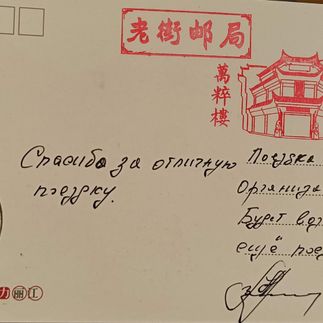 老街邮局
萬粹樓
Спасибо за отличную
поездку.
Поездка
Организа
Будет
ещё
力丽工